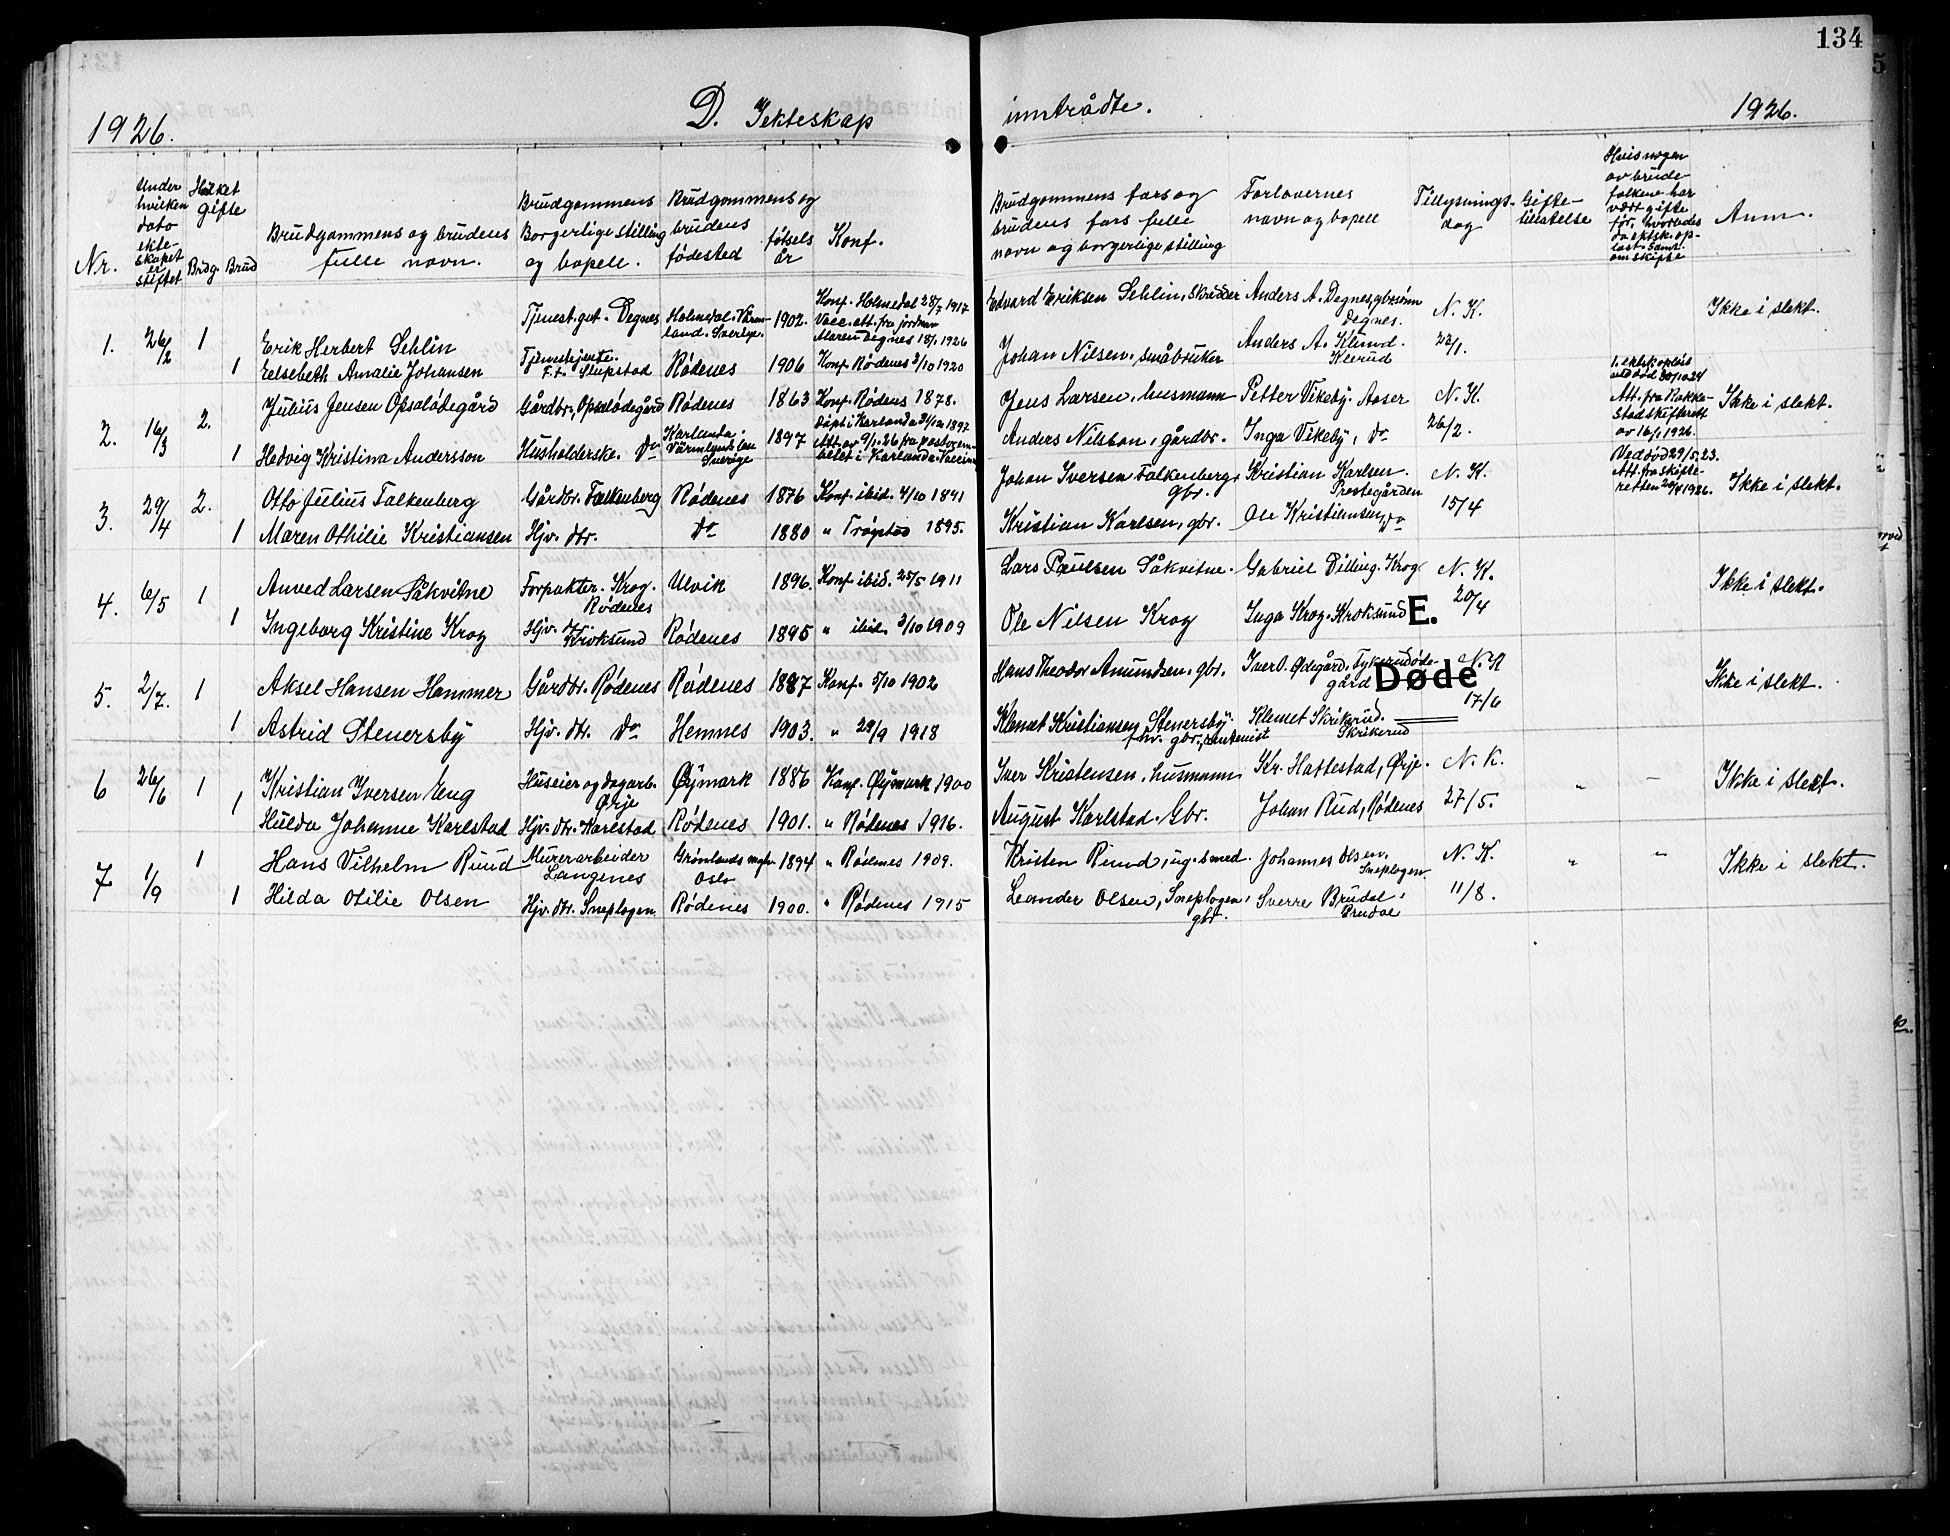 134
1926.
D. Ekteskap inntrådte.
1926.
Nr.
Under hvilken dato ekteskapet er stiftet
Hvilket gifte
Brdg. Brud
Brudgommens og brudens fulle navn.
Brudgommens Borgerlige stilling og bopel.
Brudgommens og brudens fødested
fødsels år
Konf.
Brudgommens fars og brudens fars fulle navn og borgerlige stilling
Forlovernes navn og bopell
Tillysnings- dag
Gifte- tillatelse
Hvis nogen av brude- folkene har vært gifte før, hvorledes da ektsk. op- løst. Samt. om skifte
Anm.
1. 26/2 1 Erik Herbert Sehlin Tjenest.gut. Degnes Holmedal. Värm- land. Sverige. 1902. Konf. Holmedal 28/7 1917 Vacc. att. fra jordmor Maren Degnes 18/1 1926 Edvard Eriksen Sehlin, Skredder Anders A. Degnes, gbrsønn Degnes. N. K. Ikke i slekt.
1 Elsebeth Amalie Johansen Tjenestejente. F.t. Stupstad Rødenes 1906 Konf. Rødenes 3/10 1920 Johan Nilsen. småbruker Anders A. Klund. Klerud 22/1.
2. 16/3 2. Julius Jensen Opsalødegård Gårdbr., Opsalødegård Rødenes 1863 Konf. Rødenes 1878. Jens Larsen. husmann Petter Vikeby. Aaser N. K. 1. ektsk. opløst ved død 30/10 24 Att. fra Rakke- stad skifterett av 16/1 1926. Ikke i slekt.
1 Hedvig Kristina Andersson Husholderske. Do Karlanda. Värmlands län Sverige 1897 Døpt i Karlanda 31/12 1897 Att. av 9/1. 26 fra pastorem- betet i Karlanda. Anders Nilsson, gårdbr. Inga Vikeby, do 26/2.
3. 29/4 2. Otto Julius Falkenberg Gårdbr. Falkenberg Rødenes 1876 Konf. ibid. 4/10 1891 Johan Iversen Falkenberg, gbr. Kristian Karlsen. Prestegården N. K. Ved død 29/5. 23. Att. fra skifte- retten 20/4 1926. Ikke i slekt.
1 Maren Othilie Kristiansen Hjv. dtr. do 1880 " Trøgstad 1895. Kristian Karlsen, gbr. Ole Kristiansen, do 15/4
4. 6/5 1 Anved Larsen Såkvitne Forpakter. Krog. Rødenes Ulvik 1896. Konf. ibid. 28/5 1911 Lars Paulsen Såkvitne. Gabriel Dilling. Krog N. K. Ikke i slekt.
1 Ingeborg Kristine Krog Hjv. dtr. Kroksund Rødenes 1895 " ibid. 3/10 1909 Ole Nilsen Krog Inga Krog. Kroksund E. 20/4
5. 2/7. 1 Aksel Hansen Hammer Gårdbr. Rødenes Rødenes 1887 Konf. 5/10 1902 Hans Theodor Amundsen, gbr. Iver O. Ødegård. Tykerudøde- gård Døde N. K Ikke i slekt.
1 Astrid Stenersby Hjv. dtr. Do Hemnes 1903. " 29/9 1918 Klemet Kristiansen Stenersby. fhv. gbr., Klemet Skrikerud. Skrikerud 17/6
6 26/6 1 Kristian Iversen Eng Huseier og dagarb. Ørje Øymark 1886 Konf. Øymark 1900 Iver Kristensen, husmann Kr. Hattestad, Ørje. N. K. " — Ikke i slekt.
1 Hulda Johanne Karlstad Hjv. dtr. Karlstad Rødenes 1901. " Rødenes 1916. August Karlstad. Gbr. Johan Rud, Rødenes 27/5.
7 1/9 1 Hans Vilhelm Ruud Murerarbeider Langenes Grønlands mgh. Oslo 1894 " Rødenes 1909. Kristen Ruud, ug. smed. Johannes Olsen, Sneplogen N. K. " " Ikke i slekt.
1 Hilda Otilie Olsen Hjv. dtr. Sneplogen Rødenes 1900. " Rødenes 1915 Leander Olsen, Sneplogen, gbr. Sverre Brudal, Brudal 11/8.